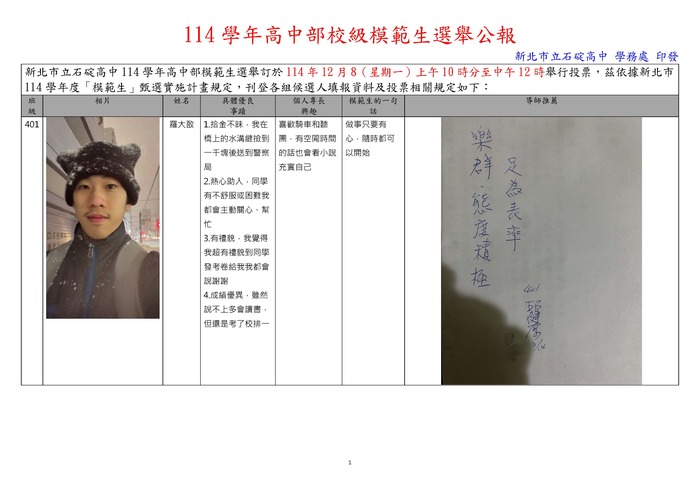 114 學年高中部校級模範生選舉公報
新北市立石碇高中 學務處 印發
新北市立石碇高中 114 學年高中部模範生選舉訂於 114 年 12 月 8（星期一）上午 10 時分至中午 12 時舉行投票，茲依據新北市
114 學年度「模範生」甄選實施計畫規定，刊登各組候選人填報資料及投票相關規定如下：
班
級
相片
姓名
具體優良
事蹟
個人專長
興趣
模範生的一句
話
導師推薦
401
羅大敔
1.拾金不昧，我在
橋上的水溝縫撿到
一千塊後送到警察
局
2.熱心助人，同學
有不舒服或困難我
都會主動關心、幫
忙
3.有禮貌，我覺得
我超有禮貌到同學
發考卷給我我都會
說謝謝
4.成績優異，雖然
說不上多會讀書，
但還是考了校排一
喜歡騎車和聽
團，有空閒時間
的話也會看小說
充實自己
做事只要有
心，隨時都可
以開始
樂群、態度積極
足為表率
401
1